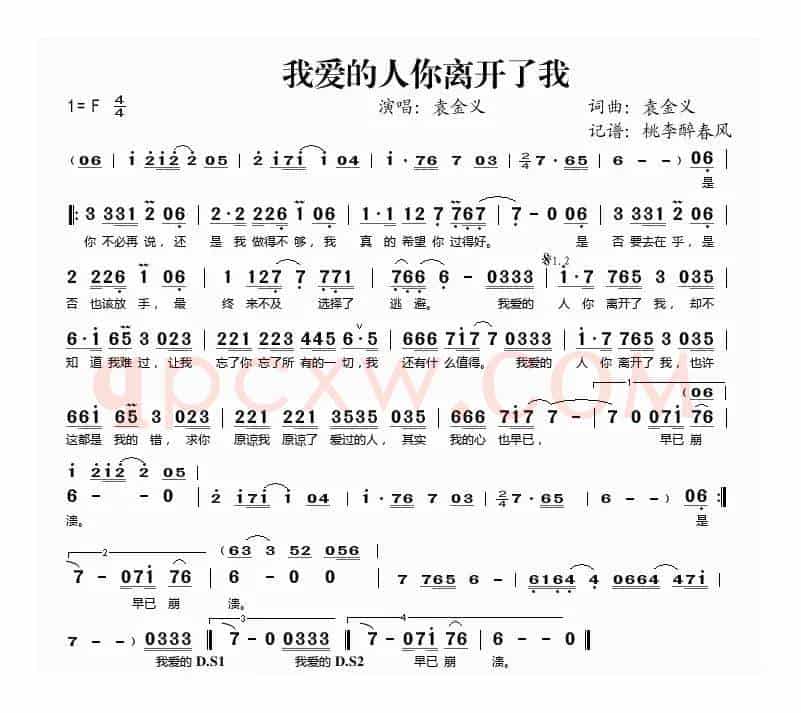 我爱的人你离开了我
1= F 4/4 演唱：袁金义 词曲：袁金义
记谱：桃李醉春风
(06 | i 2i2 2 05 | 2 i7i i 04 | i·76 7 03 | 2/4 7·65 | 6 - - ) 06 |
是
‖: 3 331 2 06 | 2·2 226 1 06 | 1·1 12 7 767 | 7 - 0 06 | 3 331 2 06 |
你 不必再 说，还 是 我 做得不 够，我 真 的 希望 你 过得好。 是 否 要去在 乎，是
2 226 1 06 | 1 127 7 771 | 766 6 - 0333 | i·7 765 3 035 |
※1、2
否 也该放 手，最 终 来不及 选择了 逃 避。 我爱的 人 你 离开了 我，却不
6·i 65 3 023 | 221 223 445 6·5 | 666 7i7 7 0333 | i·7 765 3 035 |
知 道 我难 过，让我 忘了你 忘了所 有的一 切，我 还有什么值得。 我爱的 人 你 离开了 我，也许
1
(06
66i 65 3 023 | 221 221 3535 035 | 666 7i7 7 - | 7 0 07i 76 |
这都是 我的 错，求你 原谅我 原谅了 爱过的人，其实 我的心 也早已， 早已 崩
i 2i2 2 05 |
6 - - 0 | 2 i7i i 04 | i·76 7 03 | 2/4 7·65 | 6 - - ) 06 :‖
溃。 是
2
(63 3 52 056 |
7 - 07i 76 | 6 - 0 0 | 7 765 6 - | 6164 4 0664 47i |
早已 崩 溃。
3 4
7 - ) 0333 ‖ 7 - 0 0333 ‖ 7 - 07i 76 | 6 - - 0 ‖
我爱的 D.S1 我爱的 D.S2 早已 崩 溃。
qpcxw.COM